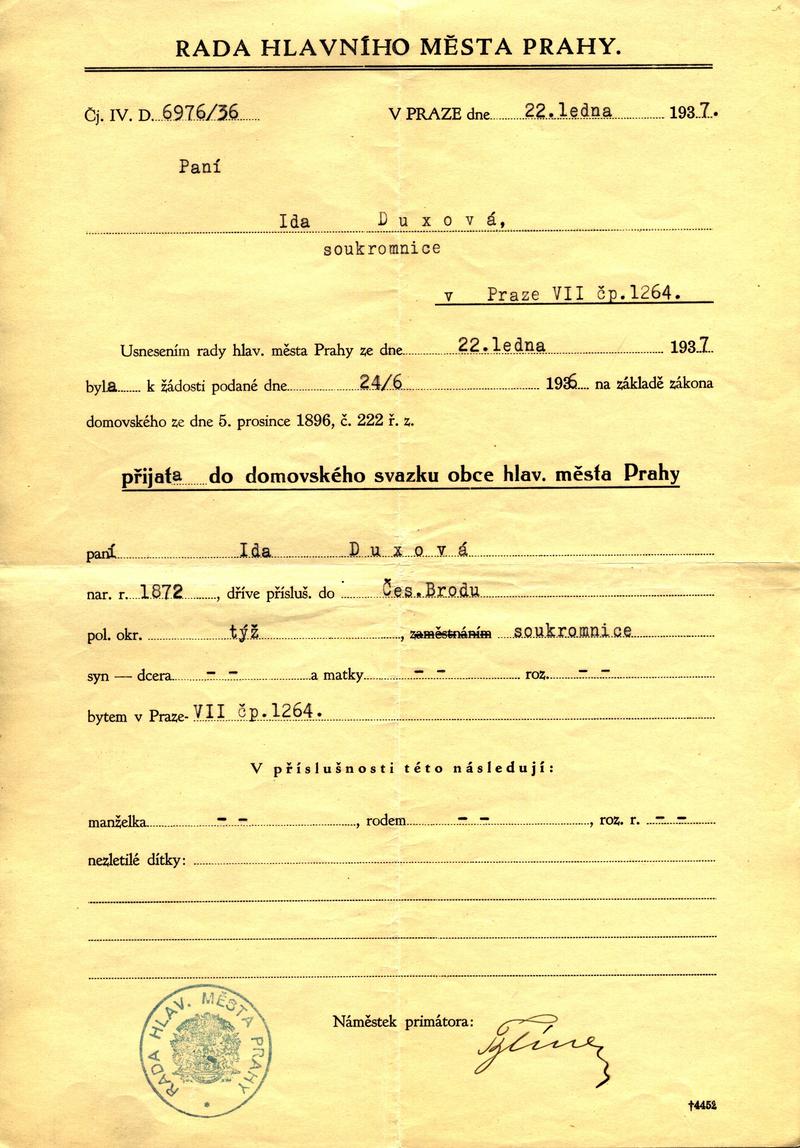 RADA HLAVNÍHO MĚSTA PRAHY.
Čj. IV. D. 6976/36 V PRAZE dne 22.ledna 1937.
Paní
Ida Duxová,
soukromnice
v Praze VII čp.1264.
Usnesením rady hlav. města Prahy ze dne 22.ledna 1937.
byla k žádosti podané dne 24/6 1936 na základě zákona
domovského ze dne 5. prosince 1896, č. 222 ř. z.
přijata do domovského svazku obce hlav. města Prahy
paní Ida Duxová
nar. r. 1872, dříve přísluš. do Čes.Brodu
pol. okr. týž, zaměstnáním soukromnice
syn — dcera - - a matky - - roz. - -
bytem v Praze- VII čp.1264.
V příslušnosti této následují:
manželka - -, rodem - -, roz. r. - -
nezletilé dítky:
Náměstek primátora:
RADA HLAV. MĚSTA PRAHY *
†4452